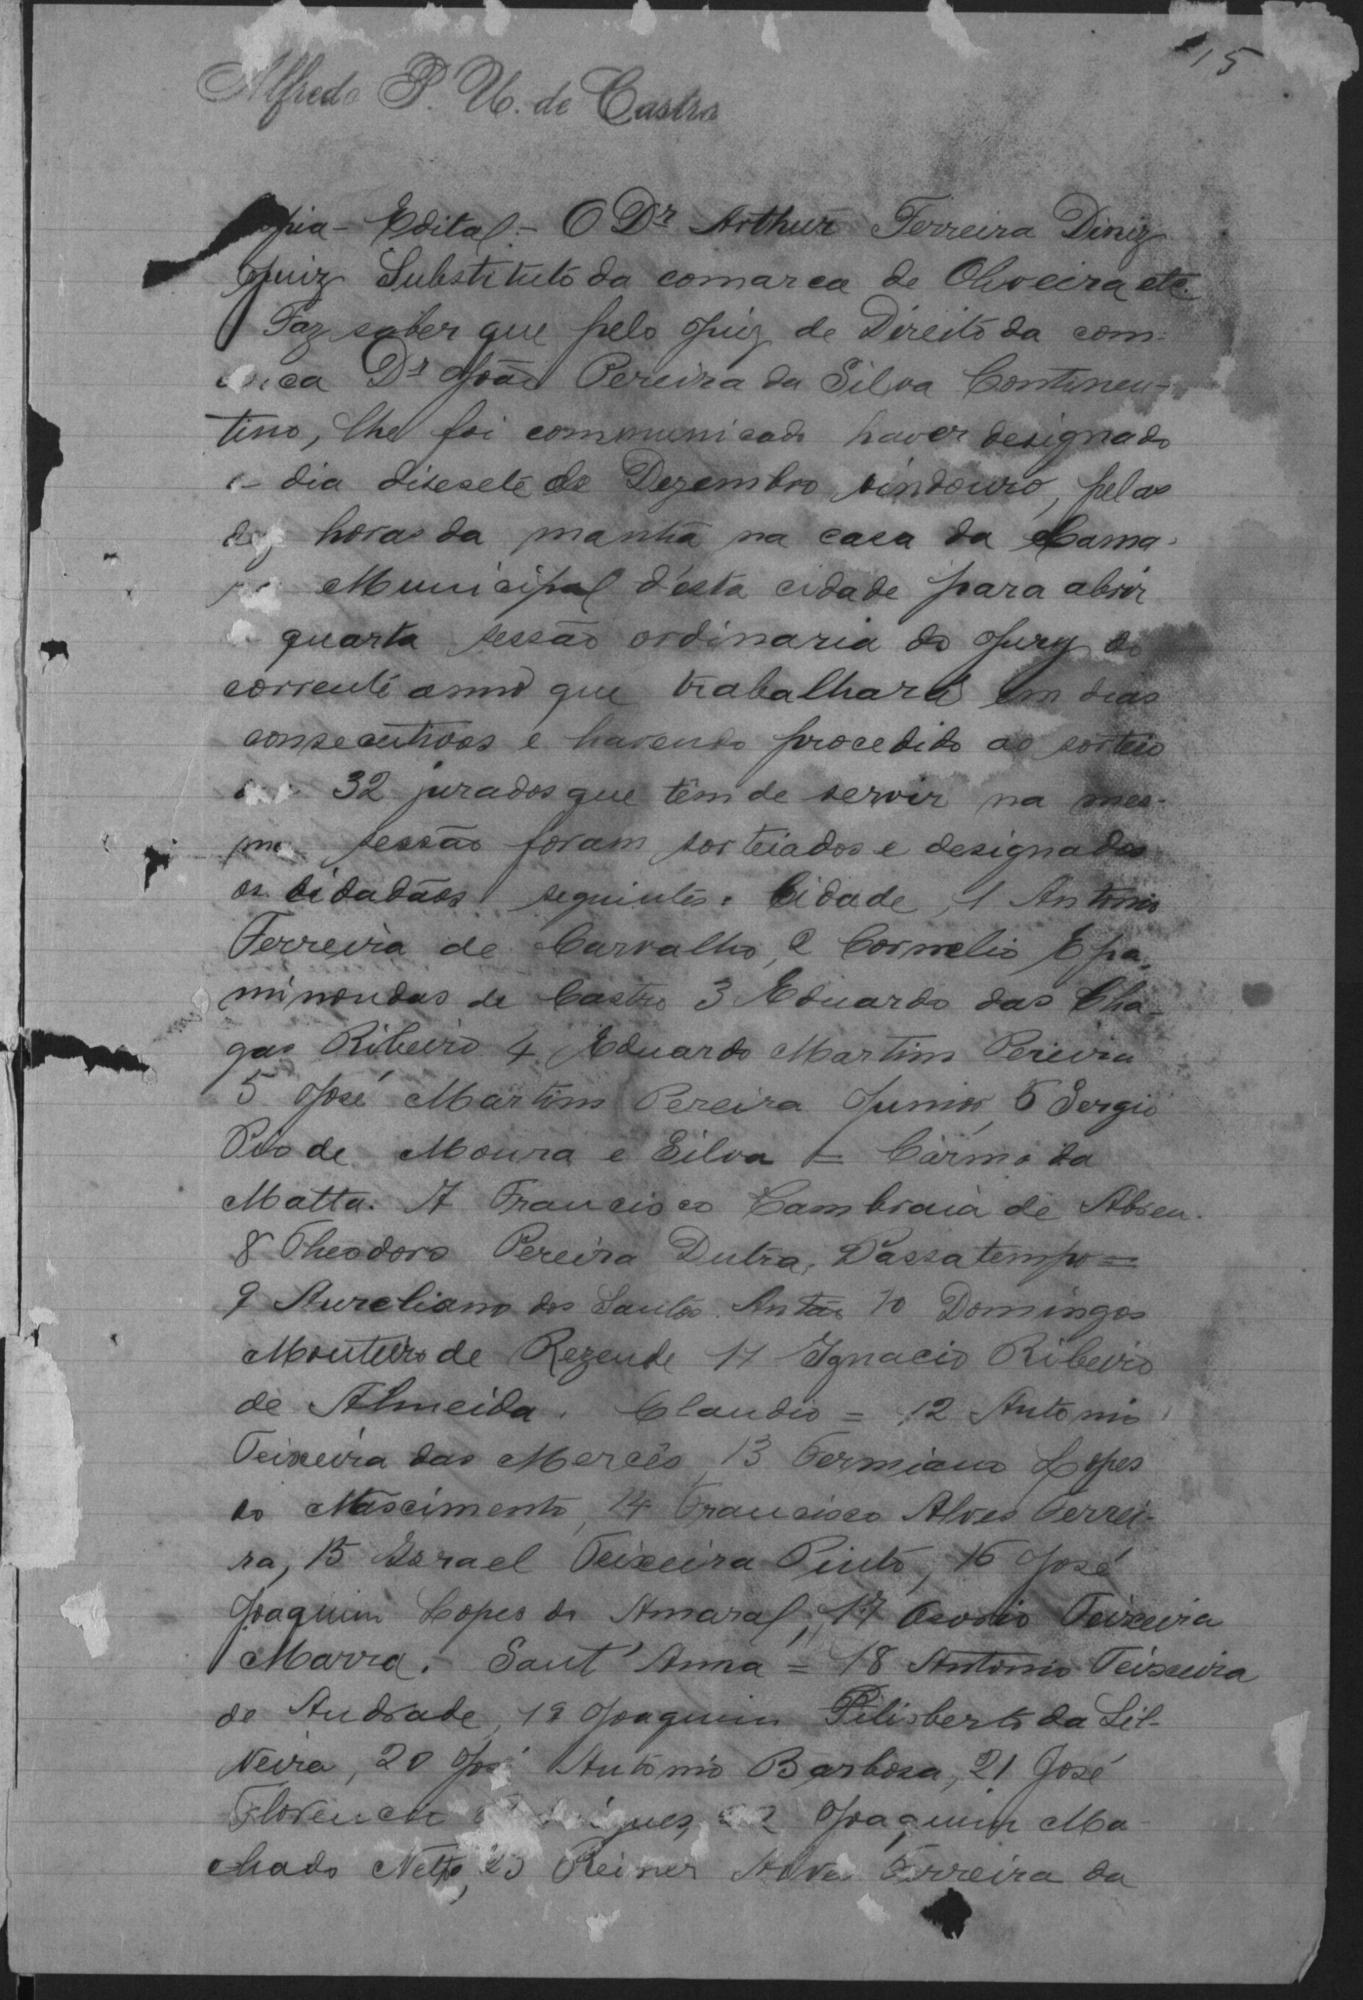 15
Alfredo P. U. de Castro
Copia - Edital. - O Dr Arthur Ferreira Diniz
Juiz Substituto da comarca de Oliveira etc.
Faz saber que pelo Juiz de Direito da com-
arca Dr João Pereira da Silva Continen-
tino, lhe foi communicado haver designado
o dia desesete de Dezembro vindouro, pelas
dez horas da manhã na casa da Cama-
ra Municipal d'esta cidade para abrir
a quarta sessão ordinaria do Jury do
corrente anno que trabalhará em dias
consecutivos e havendo procedido ao sorteio
dos 32 jurados que têm de servir na mes-
ma sessão foram sorteiados e designados
os cidadãos seguintes. Cidade, 1 Antonio
Ferreira de Carvalho, 2 Cornelio Epa-
minondas de Castro 3 Eduardo das Cha-
gas Ribeiro 4 Eduardo Martins Pereira
5 José Martins Pereira Junior, 6 Sergio
Pio de Moura e Silva = Carmo da
Matta. 7 Francisco Cambraia de Abreu.
8 Theodoro Pereira Dutra, Passatempo =
9 Aureliano dos Santos Antão 10 Domingos
Monteiro de Rezende 11 Ignacio Ribeiro
de Almeida. Claudio = 12 Antonio
Teixeira das Mercês, 13 Fermiano Lopes
do Nascimento, 14 Francisco Alves Ferrei-
ra, 15 Israel Teixeira Pinto, 16 José
Joaquim Lopes do Amaral, 17 Teixeira
Marra. - Sant'Anna = 18 Antonio Teixeira
de Andrade, 19 Joaquim Filisberto da Sil-
veira, 20 José Antonio Barbosa, 21 José
Florencio Rodrigues, 22 Joaquim Ma-
chado Netto, 23 Reiner Ferreira da